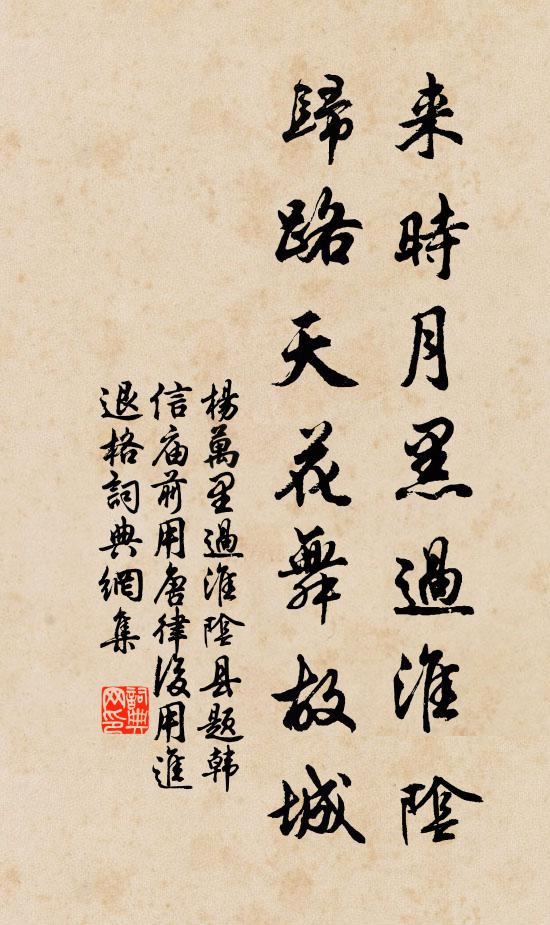 来時月黑過淮陰
歸路天花舞故城
楊萬里過淮陰县題韓
信庙前用唐律後用進
退格詞典網集
詞典网印